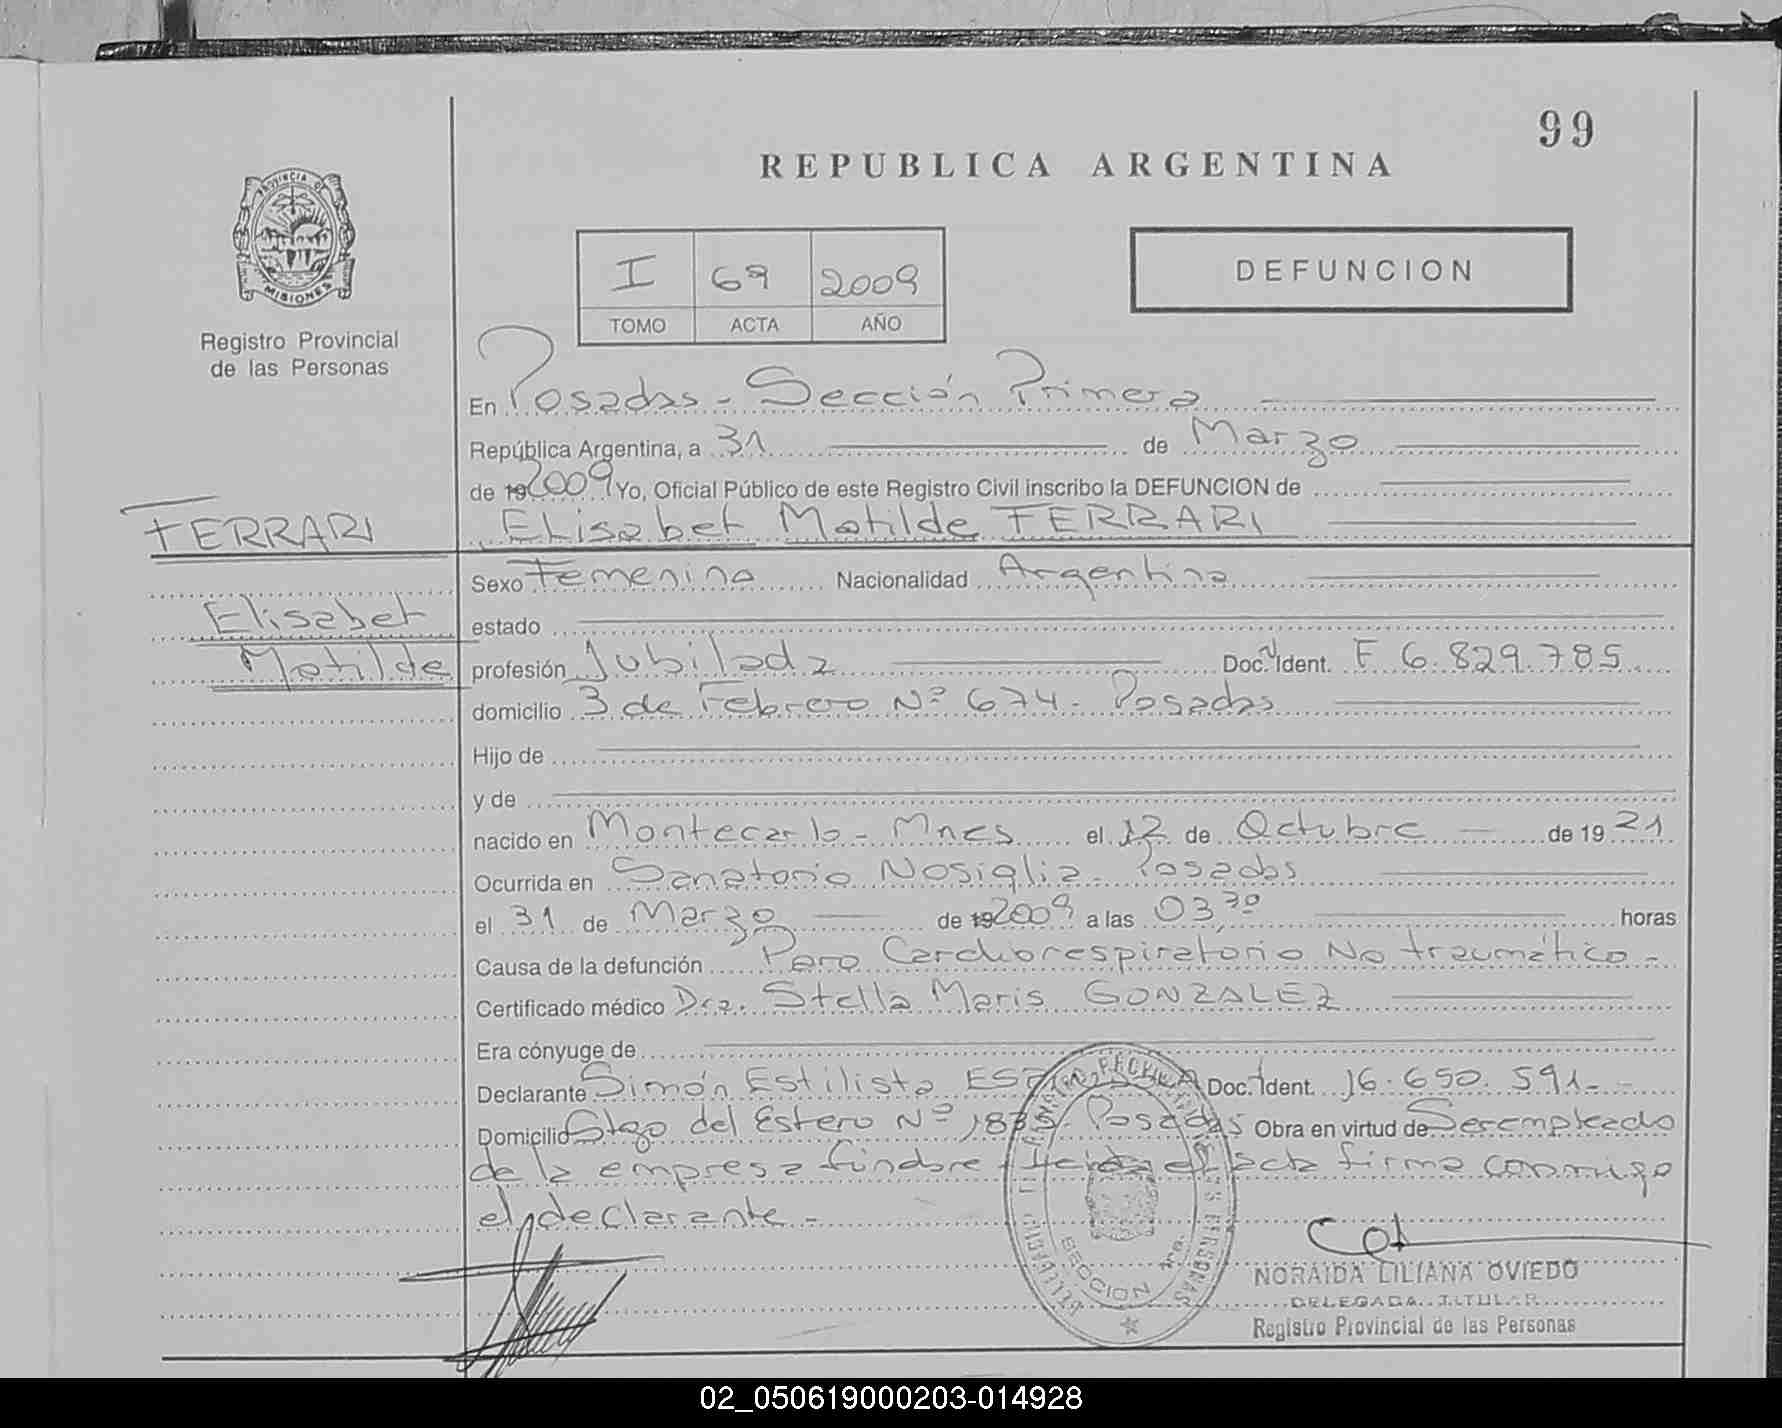 99
REPUBLICA ARGENTINA
PROVINCIA DE
MISIONES
Registro Provincial
de las Personas
I 69 2009
TOMO ACTA AÑO
DEFUNCION
En Posadas - Sección Primera
República Argentina, a 31 de Marzo
de 19 2009 Yo, Oficial Público de este Registro Civil inscribo la DEFUNCION de
FERRARI
Elisabet Matilde FERRARI
Sexo Femenino Nacionalidad Argentina
Elisabet
estado
Matilde
profesión Jubilada Doc. Ident. F 6.829.785
domicilio 3 de Febrero Nº 674 - Posadas
Hijo de
y de
nacido en Montecarlo - Mnes el 12 de Octubre de 19 21
Ocurrida en Sanatorio Nosiglia - Posadas
el 31 de Marzo de 19 2009 a las 03,30 horas
Causa de la defunción Paro Cardiorespiratorio No traumático -
Certificado médico Dra. Stella Maris GONZALEZ
Era cónyuge de
Declarante Simón Estilisto Doc. Ident. 16.650.591 -
Domicilio Stgo del Estero Nº Posadas Obra en virtud de Ser empleado
de la empresa fúnebre - Leida el acta firma conmigo
el declarante -
SECCION 1ra.
NORAIDA LILIANA OVIEDO
DELEGADA TITULAR
Registro Provincial de las Personas
02_050619000203-014928